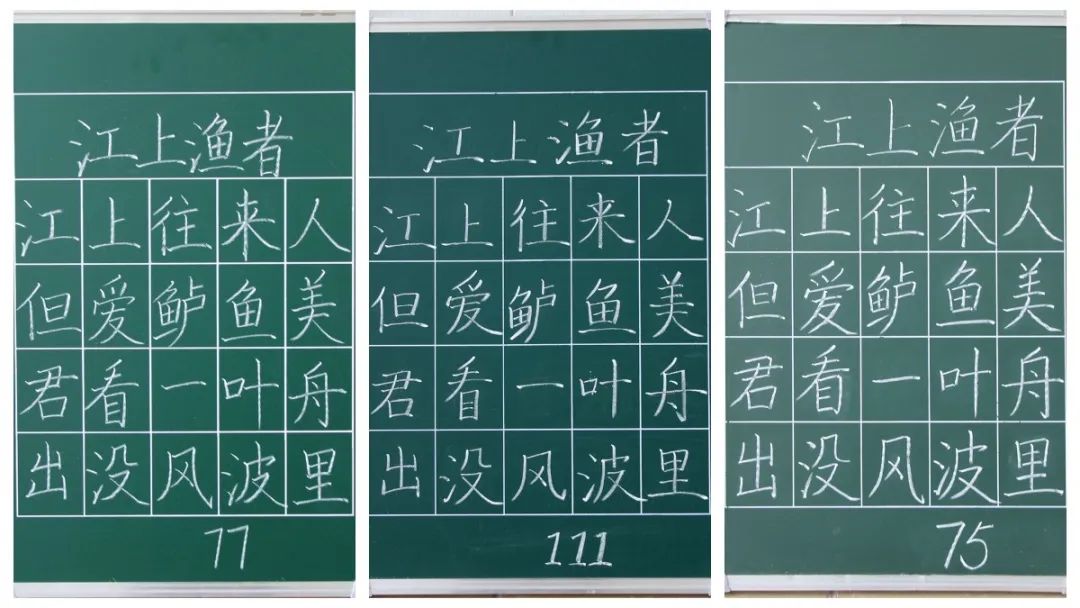 江上渔者
江上往来人
但爱鲈鱼美
君看一叶舟
出没风波里
77
江上渔者
江上往来人
但爱鲈鱼美
君看一叶舟
出没风波里
111
江上渔者
江上往来人
但爱鲈鱼美
君看一叶舟
出没风波里
75